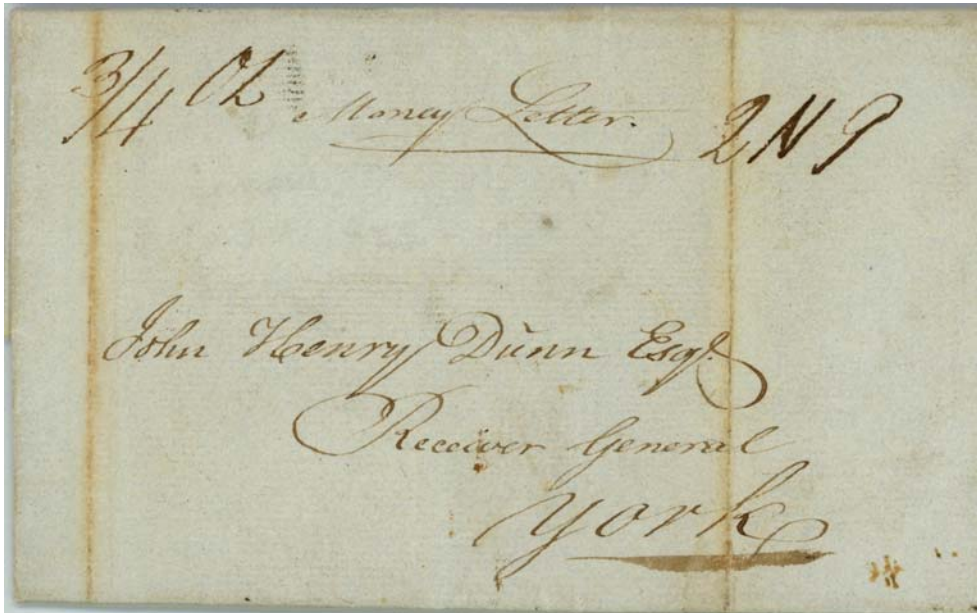 3/4 Oz Money Letter. 2 N 9
John Henry Dunn Esqr.
Receiver General
York